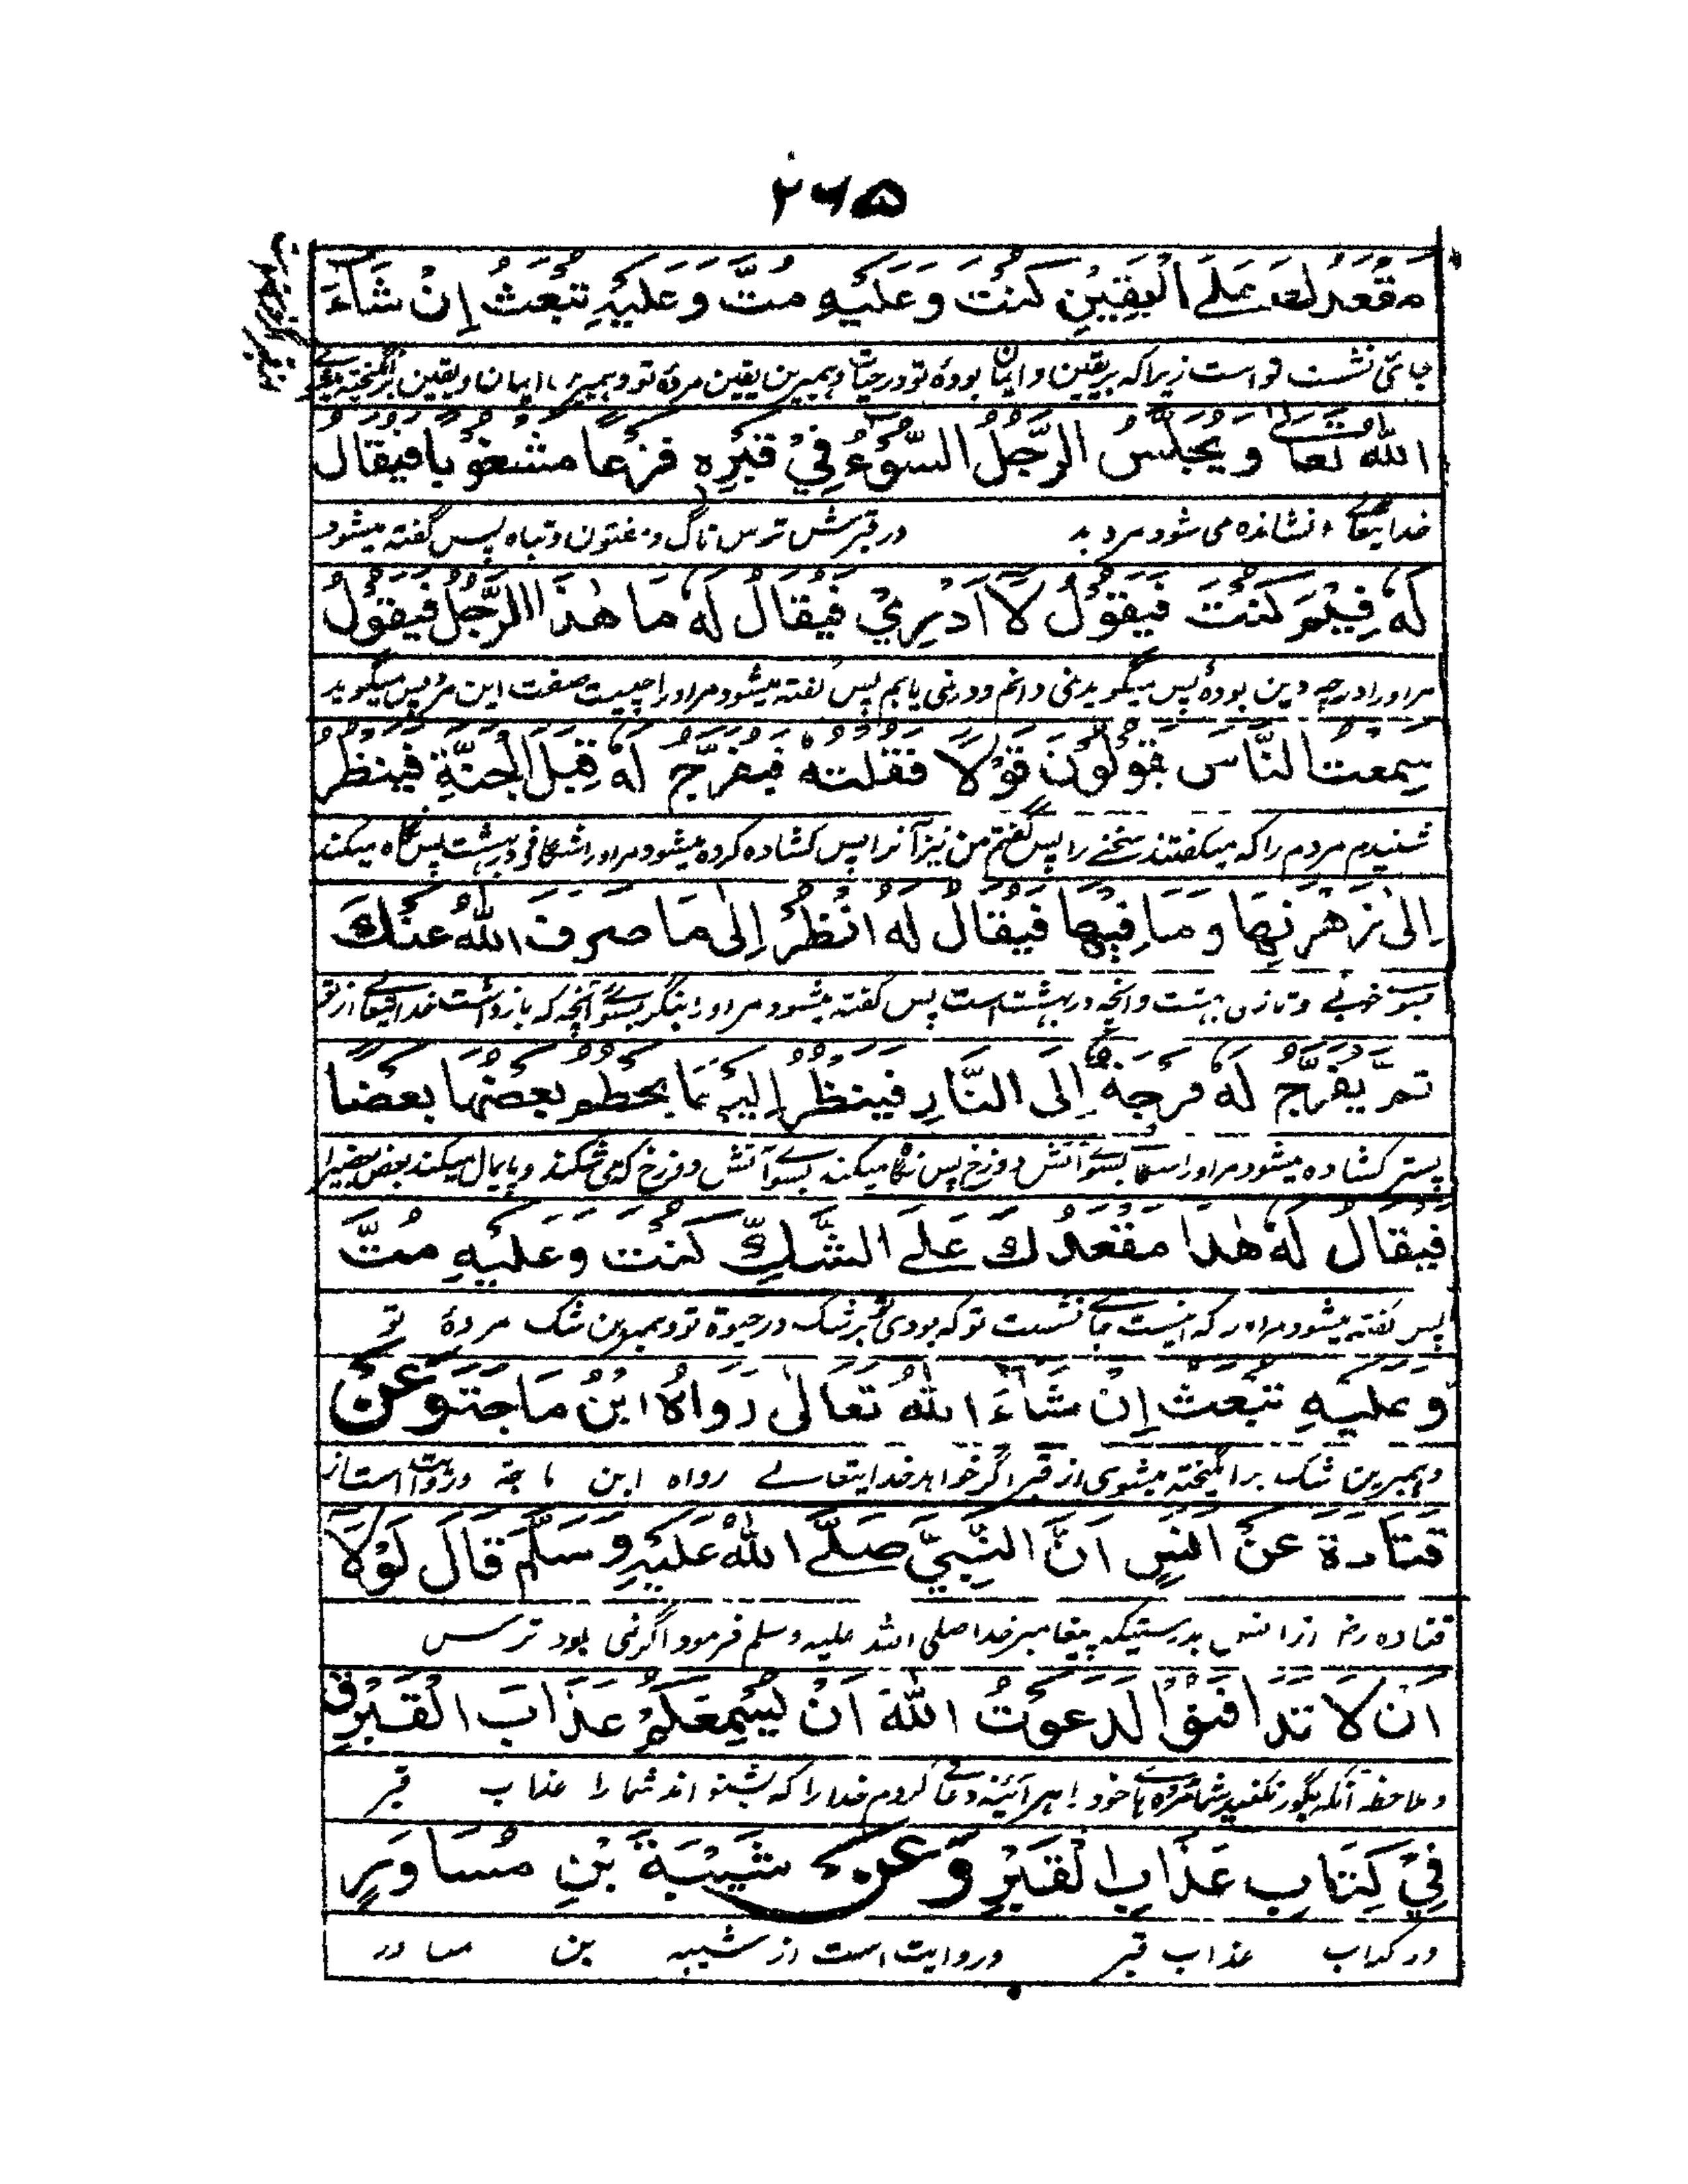 ۲۶۵
مَقْعَدُكَ عَلَى الْيَقِيْنِ كُنْتَ وَعَلَيْهِ مُتَّ وَعَلَيْهِ تُبْعَثُ إِنْ شَاءَ
جائ نشست تو است زیراکه بریقین و ایمان بودهٔ تو در حیات و بمیرین یقین مردهٔ تو و ایمان و یقین
اللهُ تَعَالٰى وَيُجْلَسُ الرَّجُلُ السُّوْءُ فِيْ قَبْرِهٖ فَزِعًا مَشْعُوْبًا فَيُقَالُ
خدایتعالے و نشانده می شود مرد بد در قبرش ترس ناک و مفتون و تباه پس گفته میشود
لَهٗ فِيْمَ كُنْتَ فَيَقُوْلُ لَا اَدْرِيْ فَيُقَالُ لَهٗ مَا هٰذَا الرَّجُلُ فَيَقُوْلُ
مر او را در چه دین بودهٔ پس میگوید نمی دانم و در نمی یابم پس گفته میشود مر او را چیست صفت این مرد پس میگوید
سَمِعْتُ النَّاسَ يَقُوْلُوْنَ قَوْلًا فَقُلْتُهٗ فَيُفْرَجُ لَهٗ قِبَلَ الْجَنَّةِ فَيَنْظُرُ
شنیدم مردم را که میگفتند سخنے را پس گفتم من نیز آنرا پس کشاده کرده میشود مر او را شگافے در بهشت پس نگاه میکند
اِلٰى زَهْرَتِهَا وَمَا فِيْهَا فَيُقَالُ لَهٗ انْظُرْ اِلٰى مَا صَرَفَ اللهُ عَنْكَ
بسوے خوبی و تازی بهشت و آنچه در بهشت است پس گفته میشود مر او را بنگر بسوے آنچه که باز داشت خدایتعالے از تو
ثُمَّ يُفْرَجُ لَهٗ فُرْجَةٌ اِلَى النَّارِ فَيَنْظُرُ اِلَيْهَا يَحْطِمُ بَعْضُهَا بَعْضًا
پستر کشاده میشود مر او را بسوے آتش دوزخ پس نگاه میکند بسوے آتش دوزخ که می شکند و پایمال میکند بعض بعضیرا
فَيُقَالُ لَهٗ هٰذَا مَقْعَدُكَ عَلَى الشَّكِّ كُنْتَ وَعَلَيْهِ مُتَّ
پس گفته میشود مر او را که اینست جاے نشست تو که بودی تو بر شک در حیوة تو و بمیرین شک مردهٔ تو
وَعَلَيْهِ تُبْعَثُ اِنْ شَاءَ اللهُ تَعَالٰى رَوَاهُ ابْنُ مَاجَةَ وَعَنْ
و بمیرین شک برانگیخته میشوی از قبر اگر خواهد خدایتعالے رواه ابن ماجة و روایت است از
قَتَادَةَ عَنْ اَنَسٍ اَنَّ النَّبِيَّ صَلَّى اللهُ عَلَيْهِ وَسَلَّمَ قَالَ لَوْلَا
قتاده رضـ از انس بدرستیکه پیغامبر خدا صلی الله علیه وسلم فرمود اگر نمی بود ترس
اَنْ لَا تَدَافَنُوْا لَدَعَوْتُ اللهَ اَنْ يُسْمِعَكُمْ عَذَابَ الْقَبْرِ
و ملاحظه آنکه بگور نکنید شما مرده ہاے خود را هر آئینه دعاے کردم خدا را که بشنواند شما را عذاب قبر
فِيْ كِتَابِ عَذَابِ الْقَبْرِ وَعَنْ شَيْبَةَ بْنِ مُسَاوِرٍ
در کتاب عذاب قبر و روایت است از شیبه بن مساور